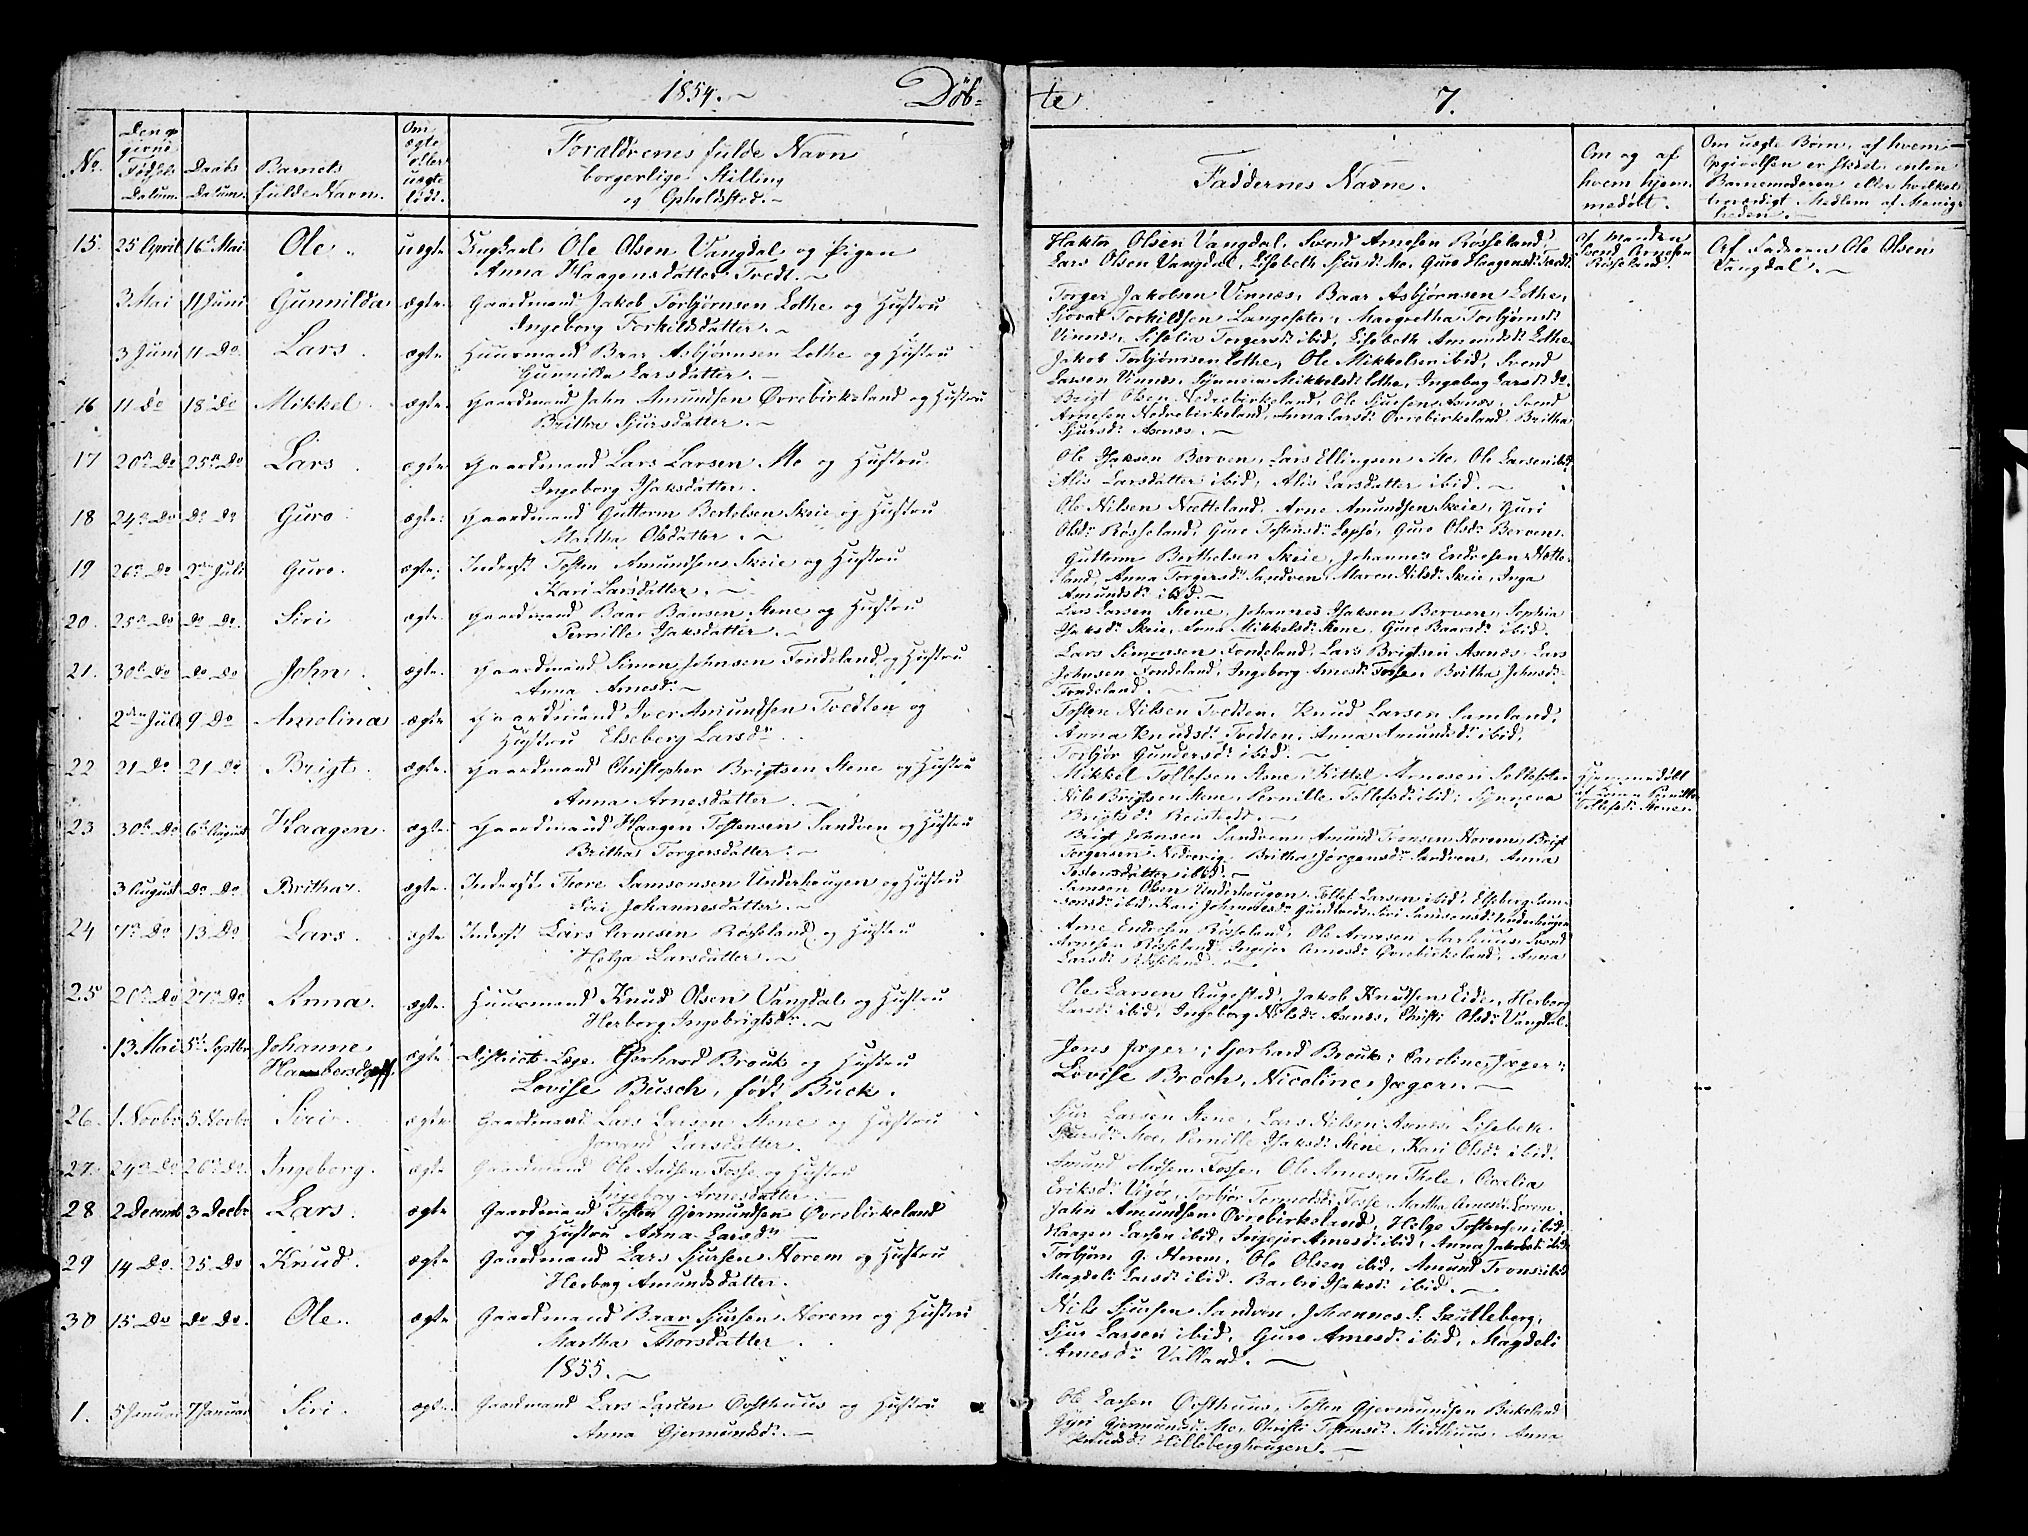 1854. Döb-
te 7.
No. Den opgivne Fødsels Datum. Daabs Datum. Barnets fulde Navn. Om ægte eller uægte født. Forældrenes fulde Navn borgerlige Stilling og Opholdsted.
Faddernes Navne. Om og af hvem hjemmedøbt. Om uægte Børn, af hvem Opgivelsen er skeet, enten Barnemoderen eller hvilket Medlem af Menigheden.
15. 25 April 16de Mai Ole uægte Ungkarl Ole Olsen Vangdal og Pigen
Anna Haagensdatter Tvedt.
Haktor Olsen Vangdal, Svend Arnesen Røsseland,
Lars Olsen Vangdal, Lisebeth Sjursd: Mo, Guro Haagensd: Tvedt.
af Manden Svend Arnesen Røsseland.
Af Faderen Ole Olsen Vangdal.
3 Mai 11 Juni Gunnilda ægte Gaardmand Jakob Torbjørnsen Lothe og Hustru
Ingeborg Torkildsdatter.
Torger Jakobsen Vinnes, Baar Asbjørnsen Lothe,
Sjovat Torkildsen Langeseter, Margretha Torbjørnsd:
Vinnes, Torgersd: ibid, Lisebeth Amundsd: Lothe.
3 Juni 11 Do. Lars. ægte Huusmand Baar Asbjørnsen Lothe og Hustru
Gunnilda Larsdatter.
Jakob Torbjørnsen Lothe, Ole Mikkelsen ibid, Svend
Larsen Vinnes, Synneva Mikkelsd: Lothe, Ingeborg Larsd: do.
16 11 Do 18 Do Mikkel ægte Gaardmand John Amundsen Øvrebirkeland og Hustru
Britha Sjursdatter.
Brigt Olsen Nedrebirkeland, Ole Sjursen Aenæs, Svend
Arnesen Nedrebirkeland, Anna Larsd: Øvrebirkeland, Britha
Sjursd: Aenæs.
17 20de Do 25de Do Lars ægte Gaardmand Lars Larsen Mo og Hustru
Ingeborg Isaksdatter.
Ole Isaksen Berven, Lars Ellingsen Mo, Ole Larsen ibid,
Alis Larsdatter ibid, Alis Larsdatter ibid.
18 24de Do Do Do Guro ægte Gaardmand Guttorm Bertelsen Skeie og Hustru
Martha Olsdatter.
Ole Nilsen Netteland, Arne Amundsen Skeie, Guri
Olsd: Røsseland, Guro Tostensd: Lepsø, Guro Olsd: Berven.
19 26de Do 2den Juli Guro. ægte Inderst Tosten Amundsen Skeie og Hustru
Kari Larsdatter.
Guttorm Berthelsen Skeie, Johannes Endresen Nette-
land, Anna Torgersd: Sandven, Maren Nilsd: Skeie, Inga
Amundsd: ibid.
20. 25de Do Do Do. Siri ægte Gaardmand Baar Baarsen Stene og Hustru
Pernille Isaksdatter.
Lars Larsen Stene, Johannes Isaksen Berven, Sophia
Isaksd: Skeie, Anna Mikkelsd: Stene, Guro Baarsd: ibid.
21. 30de Do Do Do John. ægte Gaardmand Simon Johnsen Fondeland og Hustru
Anna Arnesd:
Lars Simonsen Fondeland, Lars Brigtsen Aenæs, Lars
Johnsen Fondeland, Ingeborg Arnesd: Fosse, Britha Johnsd:
Fondeland.
2den Juli 9 Do Amolina ægte Gaardmand Iver Amundsen Tvedten og
Hustru Elseborg Larsd:
Tosten Nilsen Tvedten, Knud Larsen Samland,
Anna Knudsd: Tvedten, Anna Amundsd: ibid,
Torbjør Gundersd: ibid.
22 21 Do 21 Do Brigt. ægte Gaardmand Christopher Brigtsen Stene og Hustru
Anna Arnesdatter.
Mikkel Tollefsen Stene, Kittel Arnesen
Nils Brigtsen Stene, Pernille Tollefsd: ibid, Synneva
Brigtsd:
Hjemmedøbt af Konen Pernille Tollefsd: Stene.
23 30te Do 6te August Haagen ægte Gaardmand Haagen Tostensen Sandven og Hustru
Britha Torgersdatter.
Brigt Johnsen Sandven, Amund Tronsen Norem, Brigt
Torgersen Nedrevig, Britha Jørgensd: Sandven, Anna
Tostensdatter ibid.
3 August Do Do. Britha. ægte Inderst Thore Samsonsen Underhougen og Hustru
Siri Johannesdatter.
Samson Olsen Underhougen, Tollef Larsen ibid, Elseborg Sam-
sonsd: ibid, Kari Johannesd: Siri Samsonsd: Underhougen
24 7de Do 13 Do Lars ægte Inderst Lars Arnesen Røsseland og Hustru
Helga Larsdatter.
Arne Endresen Røsseland, Ole Arnesen Aarhuus, Svend
Arnesen Røsseland, Ingejer Arnesd: Øvrebirkeland, Anna
Larsd: Røsseland.
25 20de Do 27de Do Anna. ægte Huusmand Knud Olsen Vangdal og Hustru
Herborg Ingebrigtsd:
Ole Larsen Augestad, Jakob Knudsen Eide, Herborg
Larsd: ibid, Ingeborg Nilsd: Aenæs, Christi Olsd: Vangdal.
13 Mai 5te Septbr Johanne ægte Districts Læge Gerhard Brouk og Hustru
Lovise Busch, født Buck.
Jens Jæger, Gerhard Brouk, Caroline Jæger,
Lovise Broch, Nicoline Jæger.
26. 1 Novbr 5 Novbr Siri. ægte Gaardmand Lars Larsen Stene og Hustru
Jorand Larsdatter.
Sjur Larsen Stene, Lars Nilsen Aenæs, Lisebeth
Sjursd: Mo, Pernille Isaksd: Stene, Kari Olsd: ibid.
27. 24de Do 26 Do. Ingeborg. ægte Gaardmand Ole Fosse og Hustru
Ingeborg Arnesdatter.
Amund Fosse, Ole Arnesen Thele, Cicelia
Eriksd: Vigør, Torbjør Tormodsd: Fosse, Martha Arnesd: Norem.
28 2 Decemb 3 Decbr Lars. ægte Gaardmand Tosten Gjermundsen Øvrebirkeland
og Hustru Anna Larsd:
John Amundsen Øvrebirkeland, Helge Tostensen ibid,
Haagen Larsen ibid, Ingejer Arnesd: ibid, Anna Jakobsd: ibid.
29 14 Do. 25 Do Knud. ægte Gaardmand Lars Sjursen Norem og Hustru
Herborg Amundsdatter.
Torbjørn G. Norem, Ole Olsen ibid, Amund Trons: ibid
Magdeli Larsd: ibid, Barbro Isaksd: ibid.
30 15 Do Do Do. Ole. ægte Gaardmand Baar Sjursen Norem og Hustru
Martha Thorsdatter.
Nils Sjursen Sandven, Johannes S. Skutleberg,
Sjur Larsen ibid, Guro Arnesd: ibid, Magdeli
Arnesd: Valland.
1855.
1. 5 Januar 7 Januar Siri. ægte Gaardmand Lars Larsen Oosthuus og Hustru
Anna Gjermundsd:
Ole Larsen Oosthuus, Tosten Gjermundsen Birkeland
Gjermundsd: Mo, Christi Tostensd: Midthuus, Anna
Knudsd: Hilleberghougen.